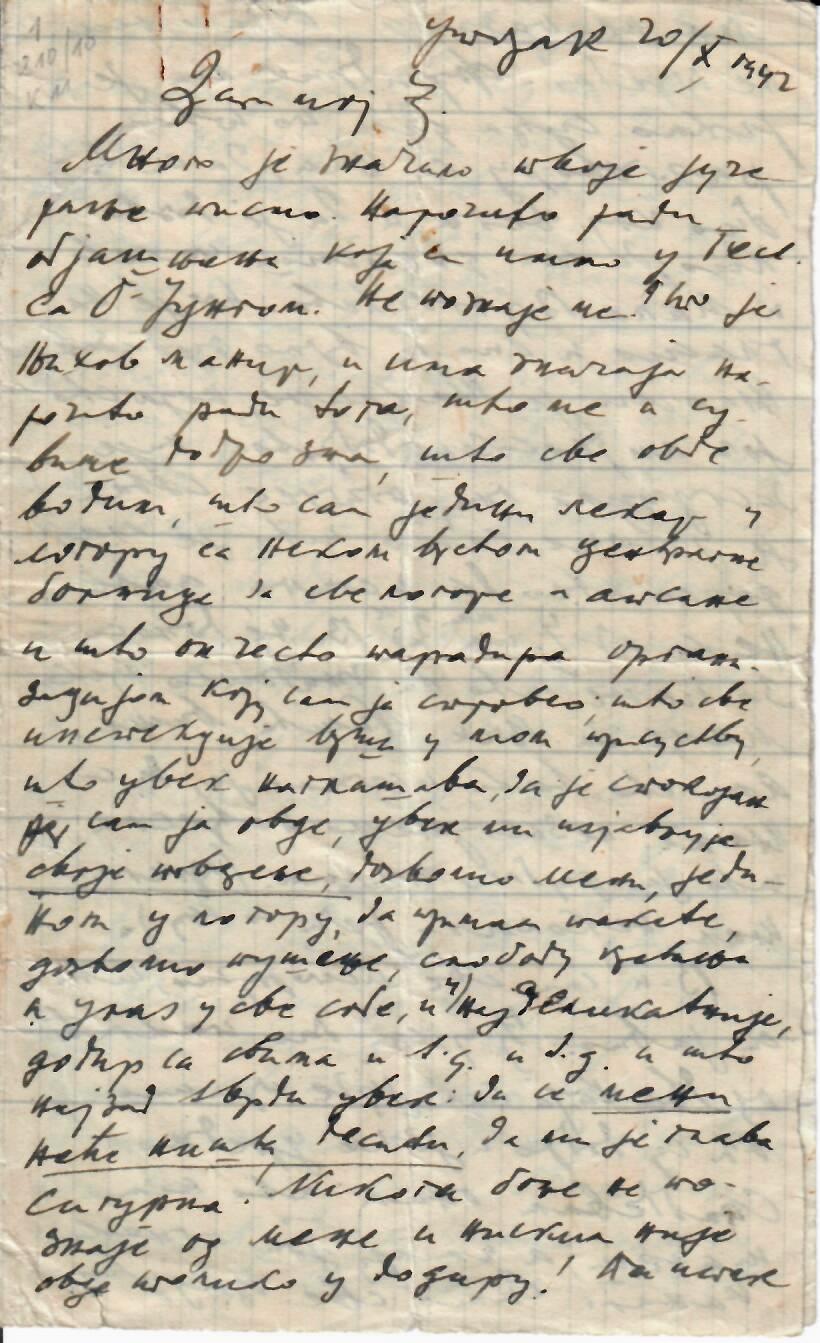 20/X 1942
1
210/10
К 11
мој Z.
Много је значило твоје јуче
рање писмо. Нарочито ради
објашњења која си имао у Гест.
са Ђ. Јунгом. Не познаје ме! То је
њихов манир, и има значаја на-
рочито ради тога, што ме и су-
више добро зна, што све овде
водим, што сам једини лекар у
логору са неком врстом централне
болнице за све логоре и апсане
и што он често парадира органи-
зацијом коју сам ја спровео, што све
инспекције врши у мом присуству,
што увек наглашава, да је спокојан
јер сам ја овде, увек ми изјављује
своје поверење, дозволио мени, једи-
ном у логору, да примам пакете,
дозволио пушење, слободу кретања
и улаз у све собе, и најделикатније,
додир са свима и т.д. и т.д. и што
најзад тврди увек: да се мени
неће ништа десити, да ми је глава
сигурна! Никога боље не по-
знаје од мене и ни с ким није
овде толико у додиру! Па ипак